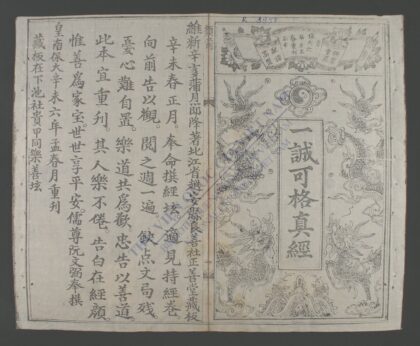 一誠可格真經
維新辛亥蒲月郎隆著北江省超安縣良善社正善堂藏板
辛未春正月奉命撰經坛適見持經卷
向前告以觀閱之週一遍缺点文局残
憂心難自置樂道共為歡忠告以善道
此本宜重刊其人樂不倦告白在經願
惟善為家宝世世享平安儒尊阮文弼奉撰
皇南保大辛未六年孟春月重刊
藏板在下池社貴甲同樂善坛